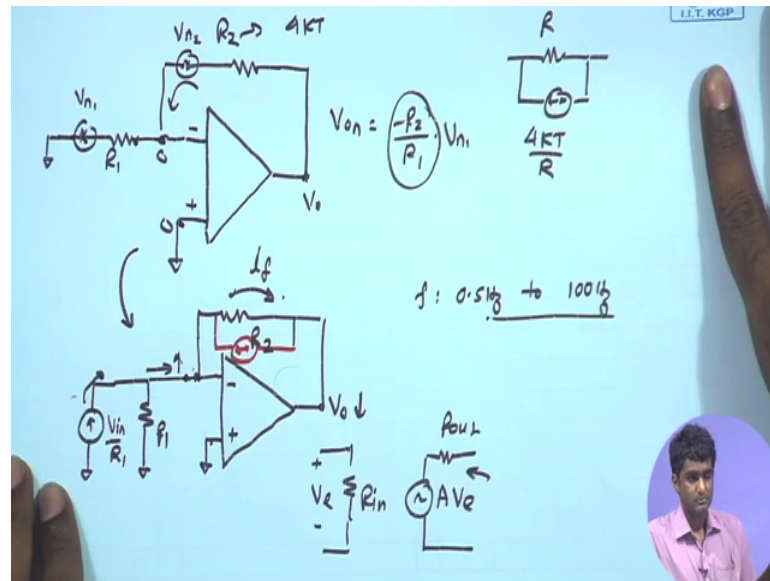 I.I.T. KGP
Vn2 R2 → 4KT
R
Vn1
R1
0
-
+
0
V0
Von = -R2/R1 · Vn1
4KT/R
If
f: 0.5Hz to 100Hz
R2
Vin/R1
R1
-
+
V0 ↓
Rout
+
Ve
-
Rin
AVe